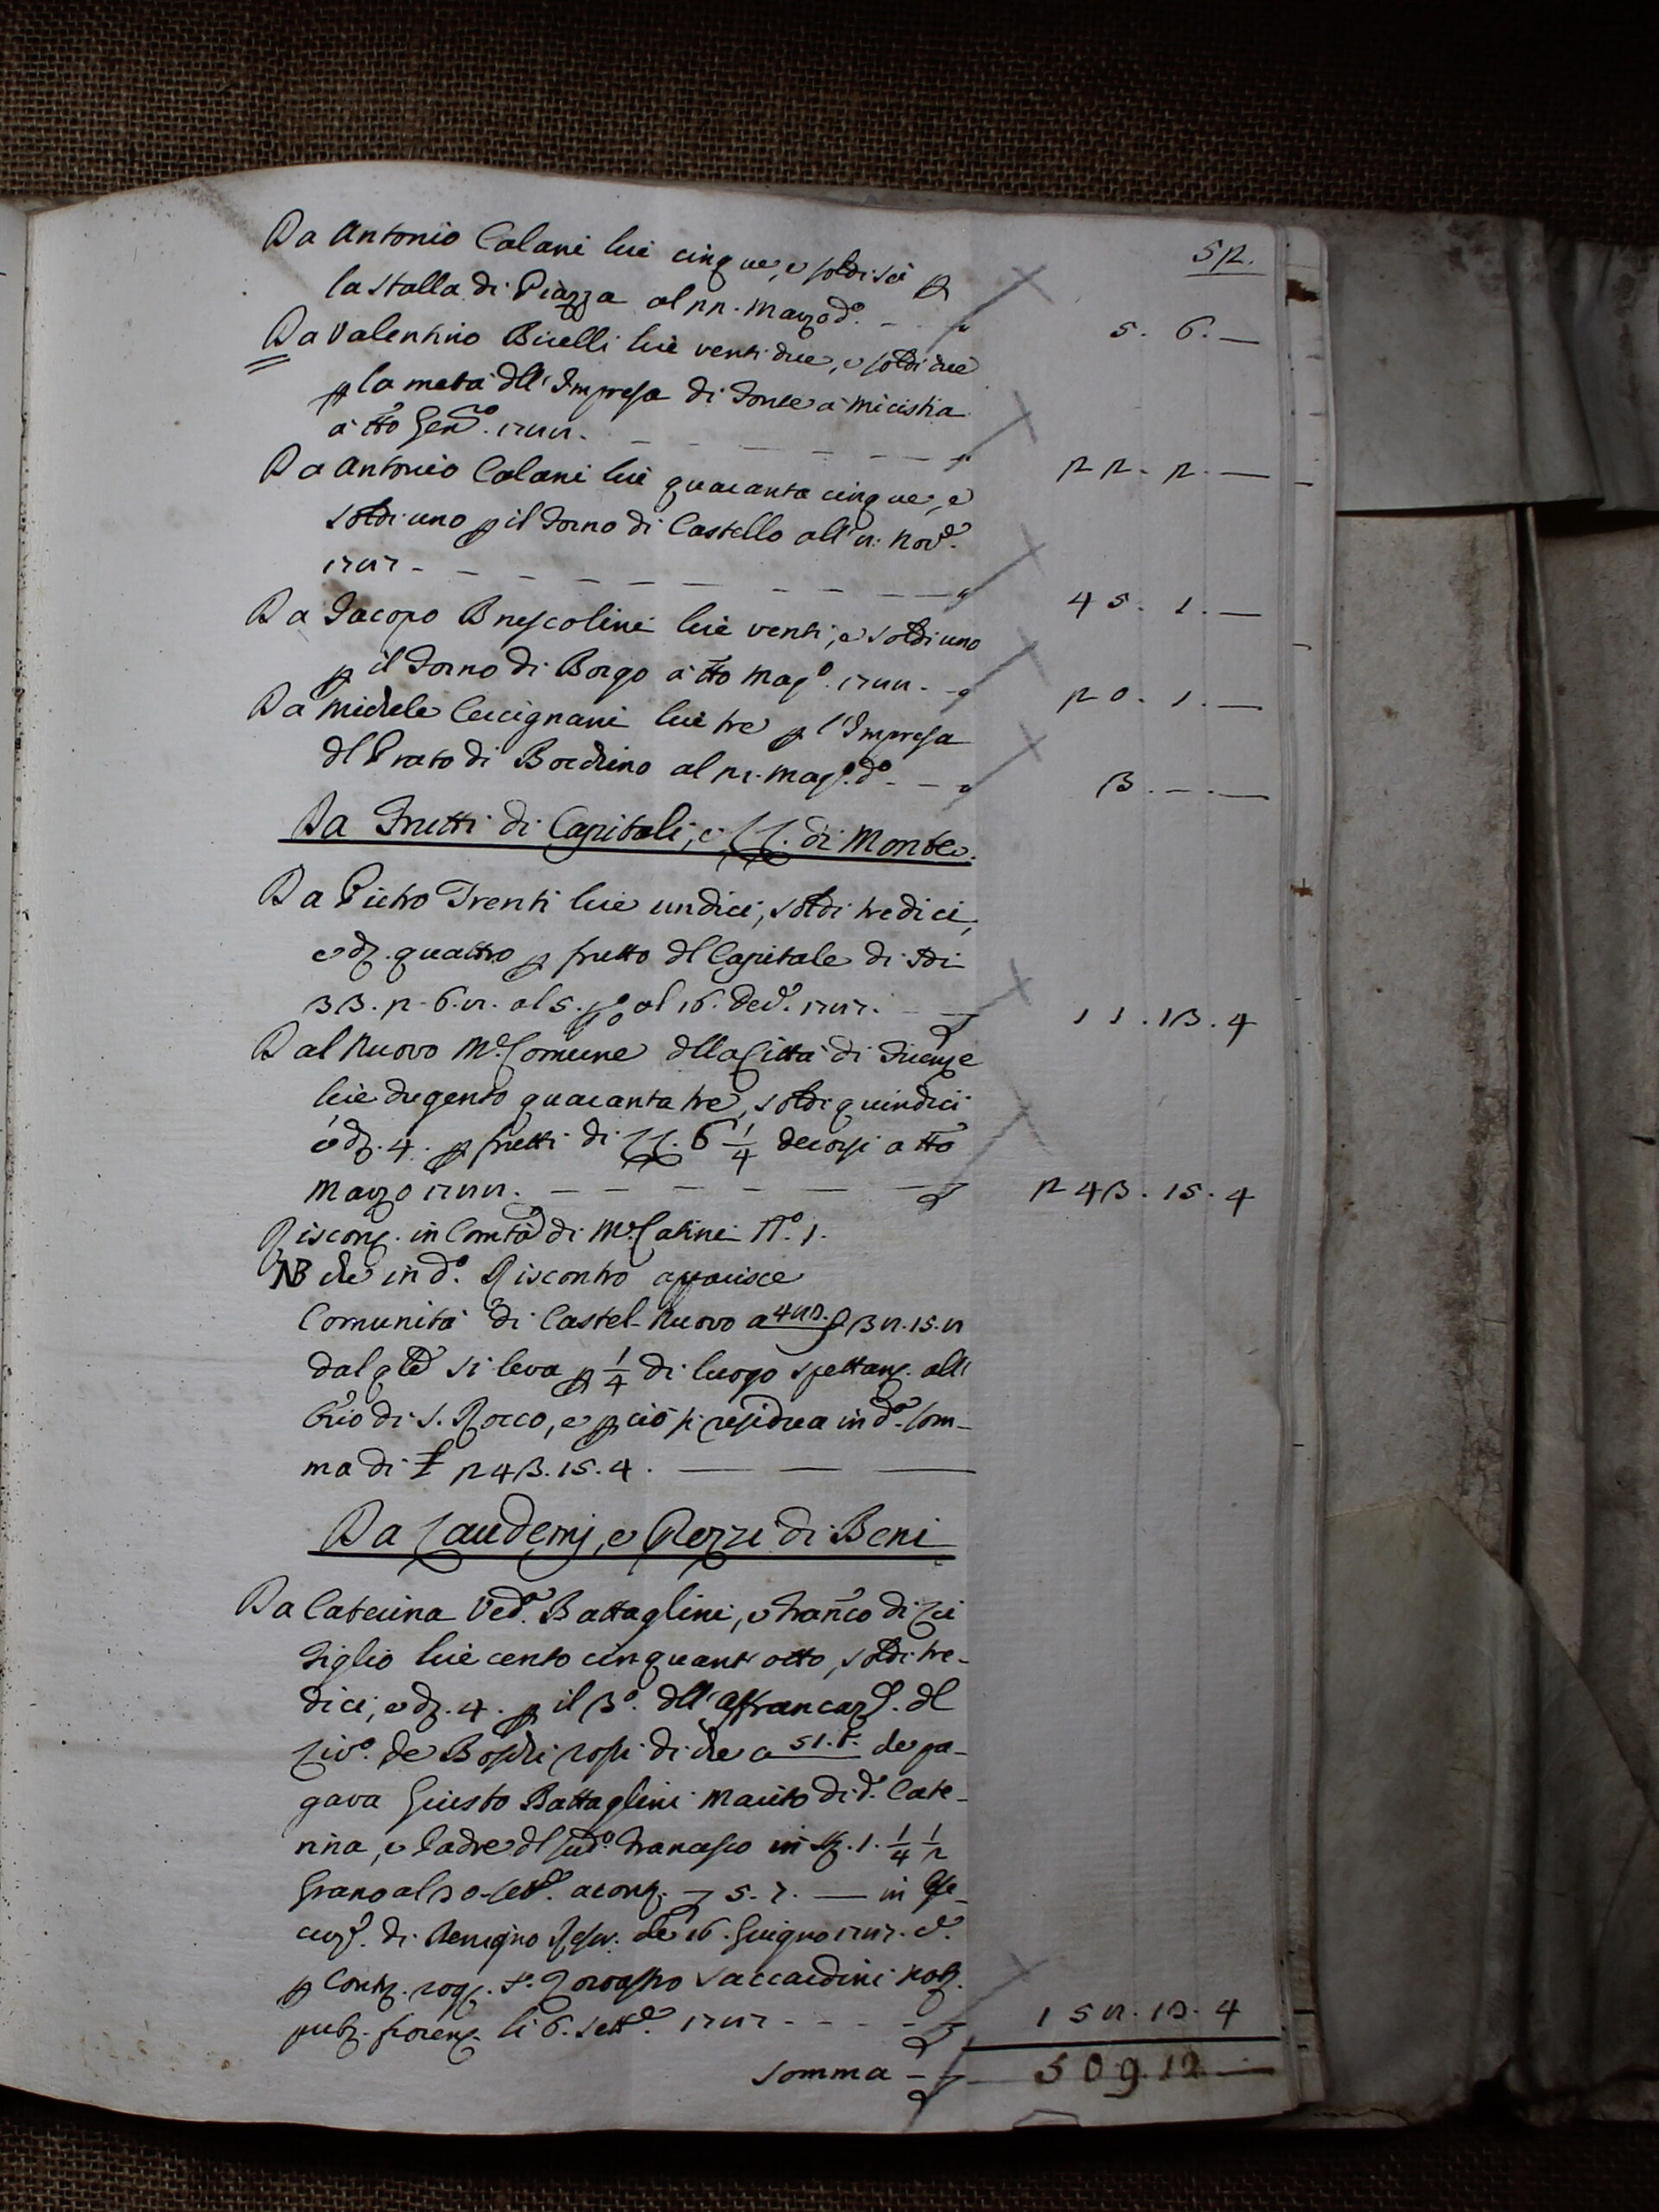 52.
Da Antonio Calani lire cinque, e soldi sei p
la stalla di Piazza al 22. Marzo do. 5. 6. —
Da Valentino Bicelli lire venti due, e soldi due
p la metà dll' Impresa di Fonte a Micistia
a tto Genro. 1788. 22. 2. —
Da Antonio Calani lire quaranta cinque, e
soldi uno p il Forno di Castello all' 8. Nove.
1787 45. 1. —
Da Jacopo Brescolini lire venti, e soldi uno
p il Forno di Borgo a tto Mago. 1788. 20. 1. —
Da Michele Cercignani lire tre p l'Impresa
dl Prato di Bocchino al 21. Mago. do 3. — . —
Da Frutti di Capitali, e LL. di Monte.
Da Pietro Trenti lire undici, soldi tredici,
e dz. quattro p frutto dl Capitale di sdi
33. 2. 6. 8. al 5. p% al 16. Dece. 1787. 11. 13. 4
Dal Nuovo Me. Comune dlla Città di Firenze
lire dugento quaranta tre, soldi quindici
e dz. 4. p frutti di LL. 6 1/4 decorsi a tto
Marzo 1788. 243. 15. 4
Riscong. in Comtà di Me. Catini No. 1.
NB che in do. Riscontro apparisce
Comunità di Castel-Nuovo a 483. 38. 15. 8
dal qle si leva p 1/4 di luogo spettang. all'
Orio di S. Rocco, e p ciò si residua in da. som-
ma di £ 243. 15. 4.
Da Laudemj, e Prezzi di Beni
Da Caterina Veda. Battaglini, e Franco di Lei
Figlio lire cento cinquant'otto, soldi tre-
dici, e dz. 4. p il 3o. dll' Affrancaze. dl
Livo. de Boschi rossi di che a 51. che pa-
gava Giusto Battaglini Marito di da. Cate-
rina, e Padre dl sudo. Francesco in 1. 1/4 1/2
Grano al 30. Sete. 5. 7. — in Ese-
cuze. di Benigno Rescr. de 16. Giugno 1787. e
p Contr. rog. Sr. Zoroastro Saccardini Notr.
pubz. fiorenz. li 6. Sette. 1787 158. 13. 4
Somma 509. 12. —